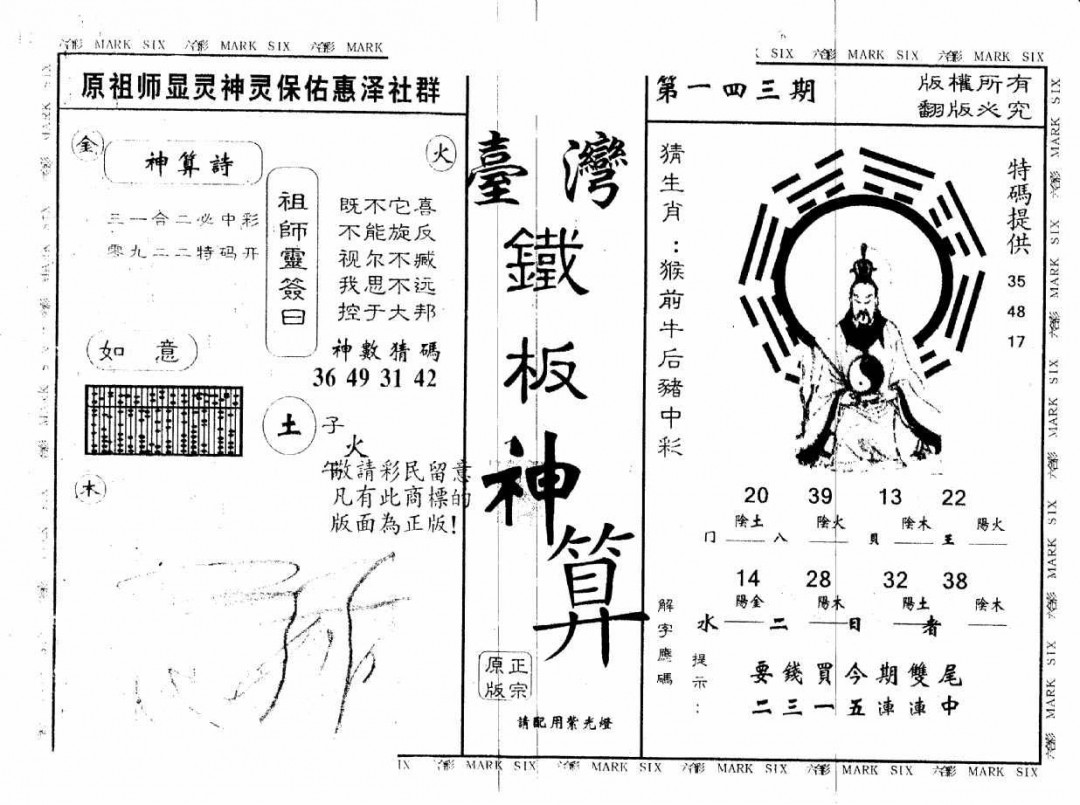 六彩 MARK SIX 六彩 MARK SIX 六彩 MARK
SIX 六彩 MARK SIX 六彩 MARK SIX
原祖师显灵神灵保佑惠泽社群
金
火
神算詩
三一合二必中彩
零九二二特码开
祖師靈簽曰
既不它喜
不能旋反
视尔不臧
我思不远
控于大邦
神數猜碼
36 49 31 42
如意
土
子
火
木
敬請彩民留意
凡有此商標的
版面為正版!
臺灣
鐵板神算
正宗
原版
請配用紫光燈
第一四三期
版權所有
翻版必究
猜生肖:猴前牛后豬中彩
特碼提供
35
48
17
20 39 13 22
陰土 陰火 陰木 陽火
门 八 貝 王
14 28 32 38
陽金 陽木 陽土 陰木
水 二 日 者
解字應碼
提示:
要錢買今期雙尾
二三一五連連中
IX 六彩 MARK SIX 六彩 MARK SIX 六彩 MARK SIX 六彩 MARK SIX 六彩 MARK SIX